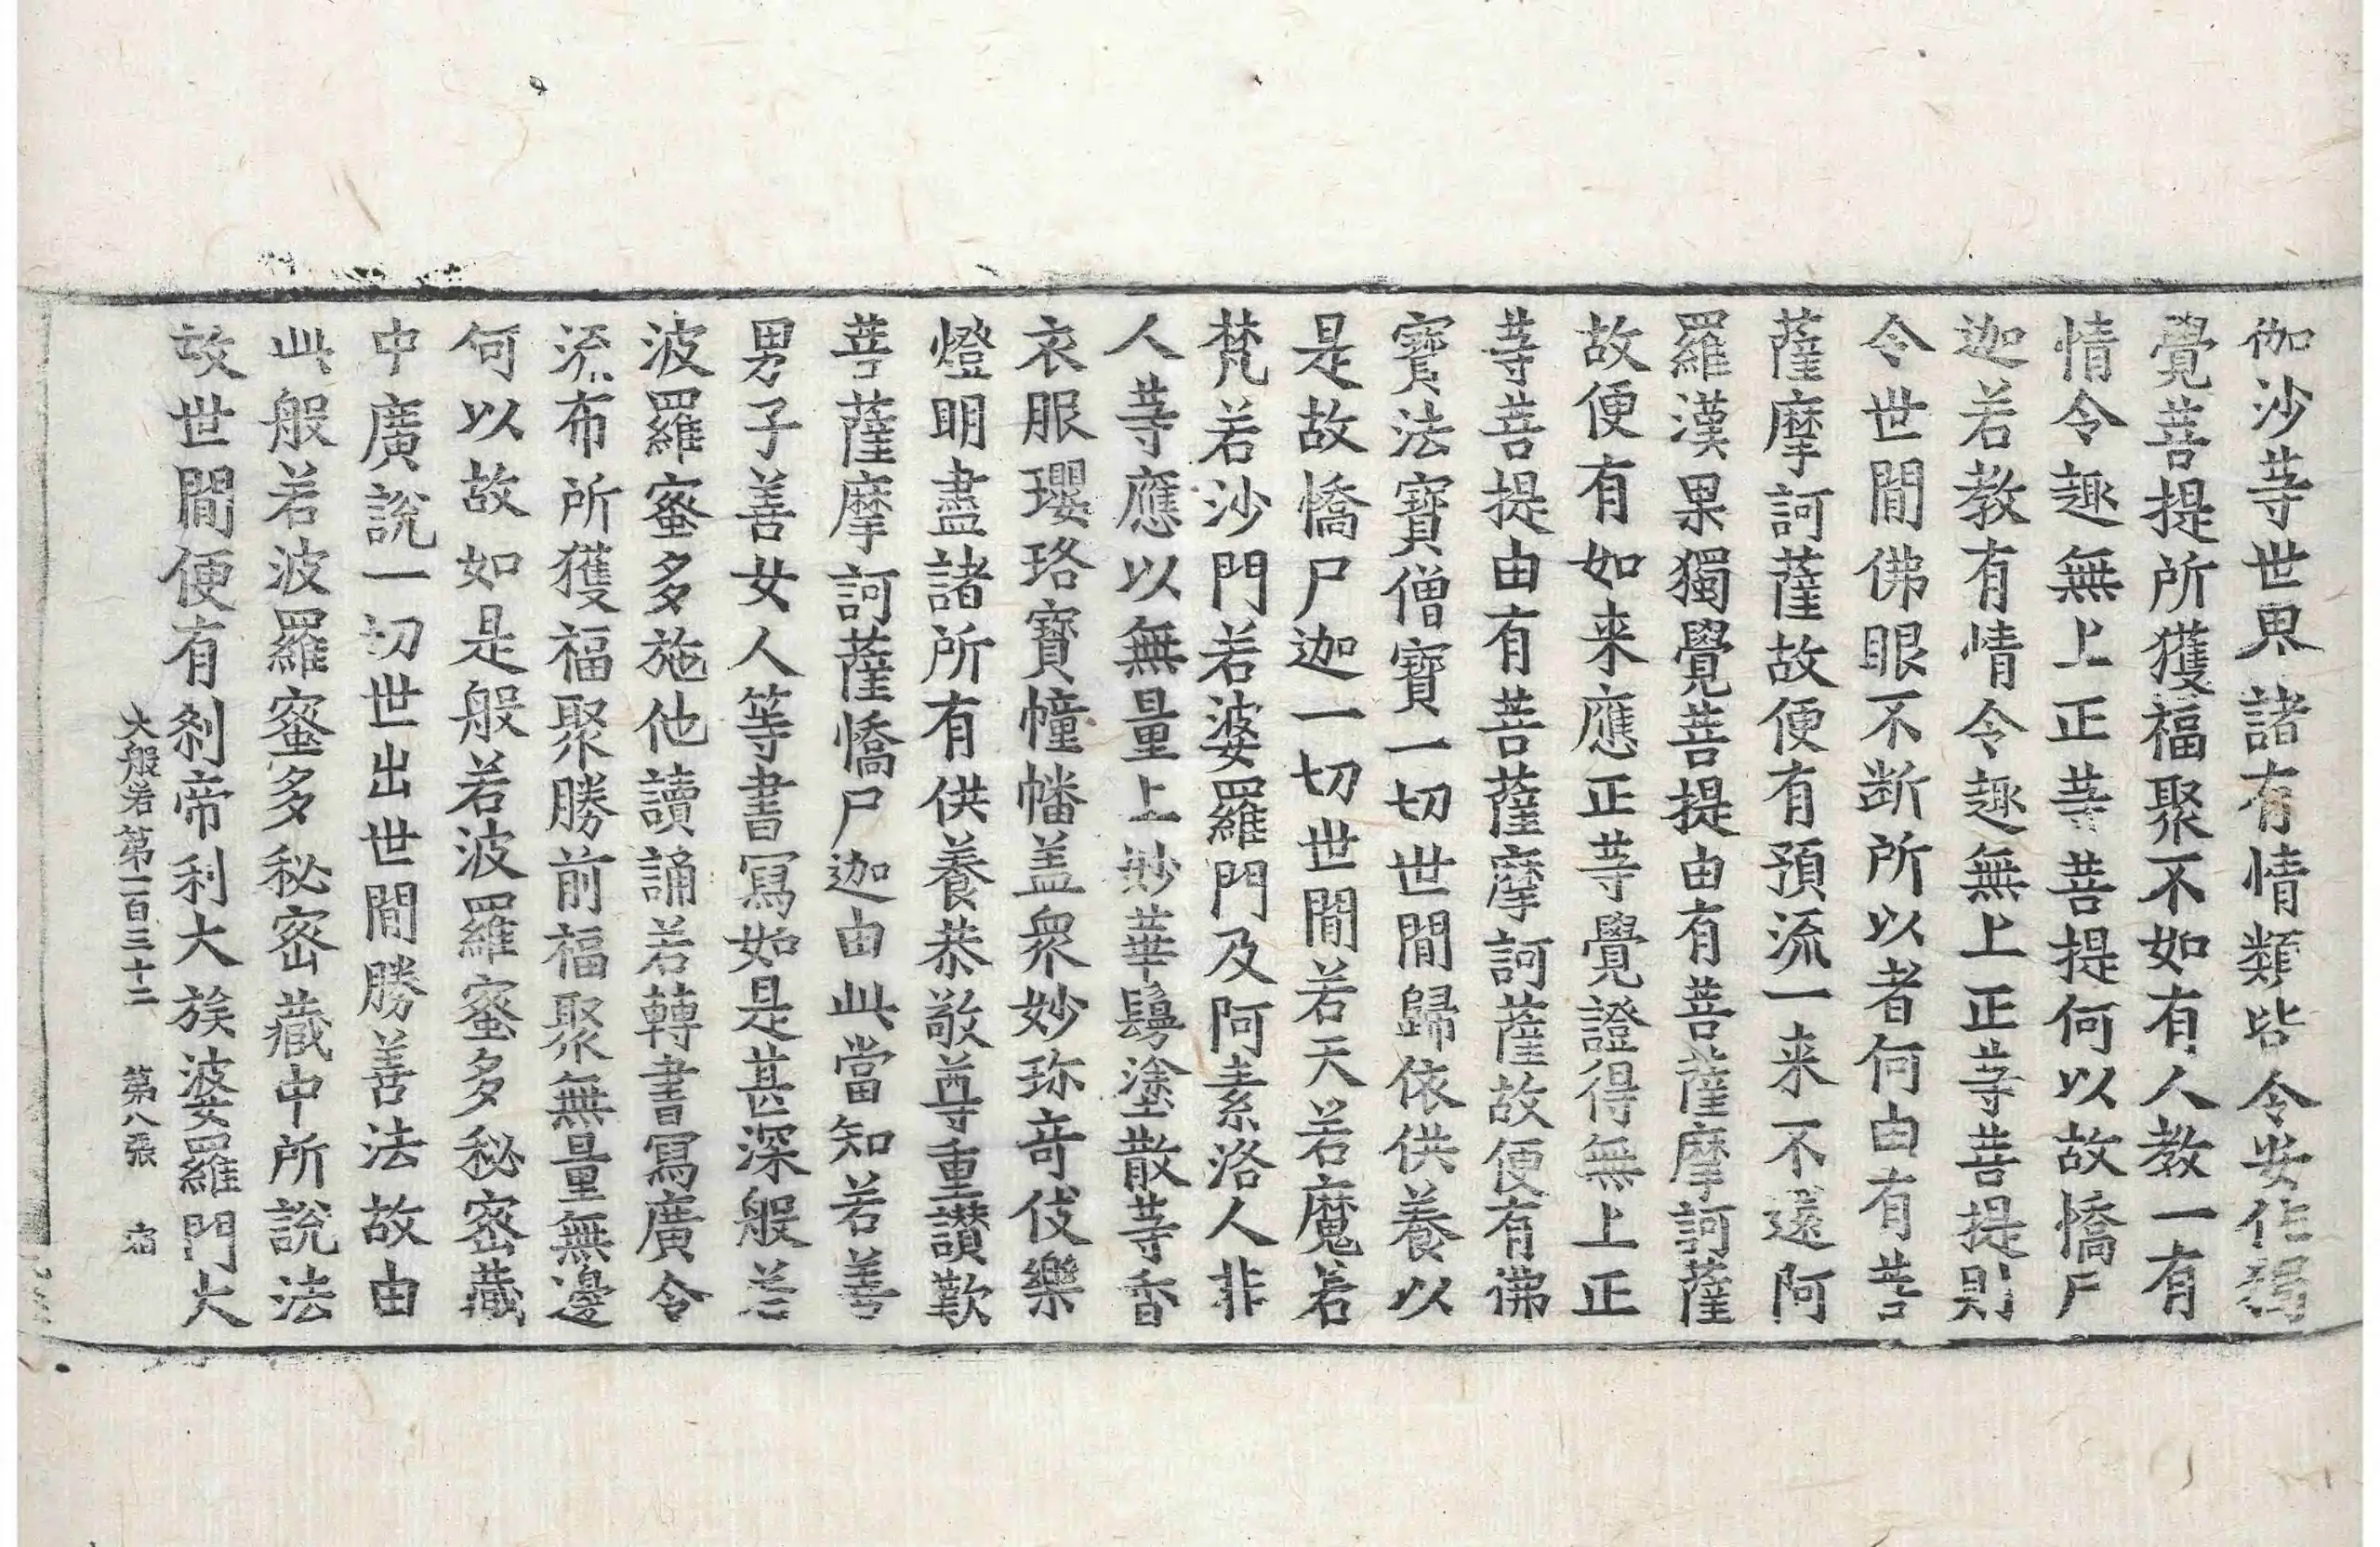 伽沙等世界諸有情類皆令安住獨
覺菩提所獲福聚不如有人教一有
情令趣無上正等菩提何以故憍尸
迦若教有情令趣無上正等菩提則
令世間佛眼不断所以者何由有菩
薩摩訶薩故便有預流一来不還阿
羅漢果獨覺菩提由有菩薩摩訶薩
故便有如来應正等覺證得無上正
等菩提由有菩薩摩訶薩故便有佛
寶法寶僧寶一切世間歸依供養以
是故憍尸迦一切世間若天若魔若
梵若沙門若婆羅門及阿素洛人非
人等應以無量上妙華鬘塗散等香
衣服瓔珞寶幢幡盖衆妙珎竒伎樂
燈明盡諸所有供養恭敬尊重讃歎
菩薩摩訶薩憍尸迦由此當知若善
男子善女人等書寫如是甚深般若
波羅蜜多施他讀誦若轉書寫廣令
流布所獲福聚勝前福聚無量無邊
何以故如是般若波羅蜜多秘密藏
中廣說一切世出世間勝善法故由
此般若波羅蜜多秘密藏中所說法
故世間便有刹帝利大族婆羅門大
大般若第一百三十二 第八張 宿